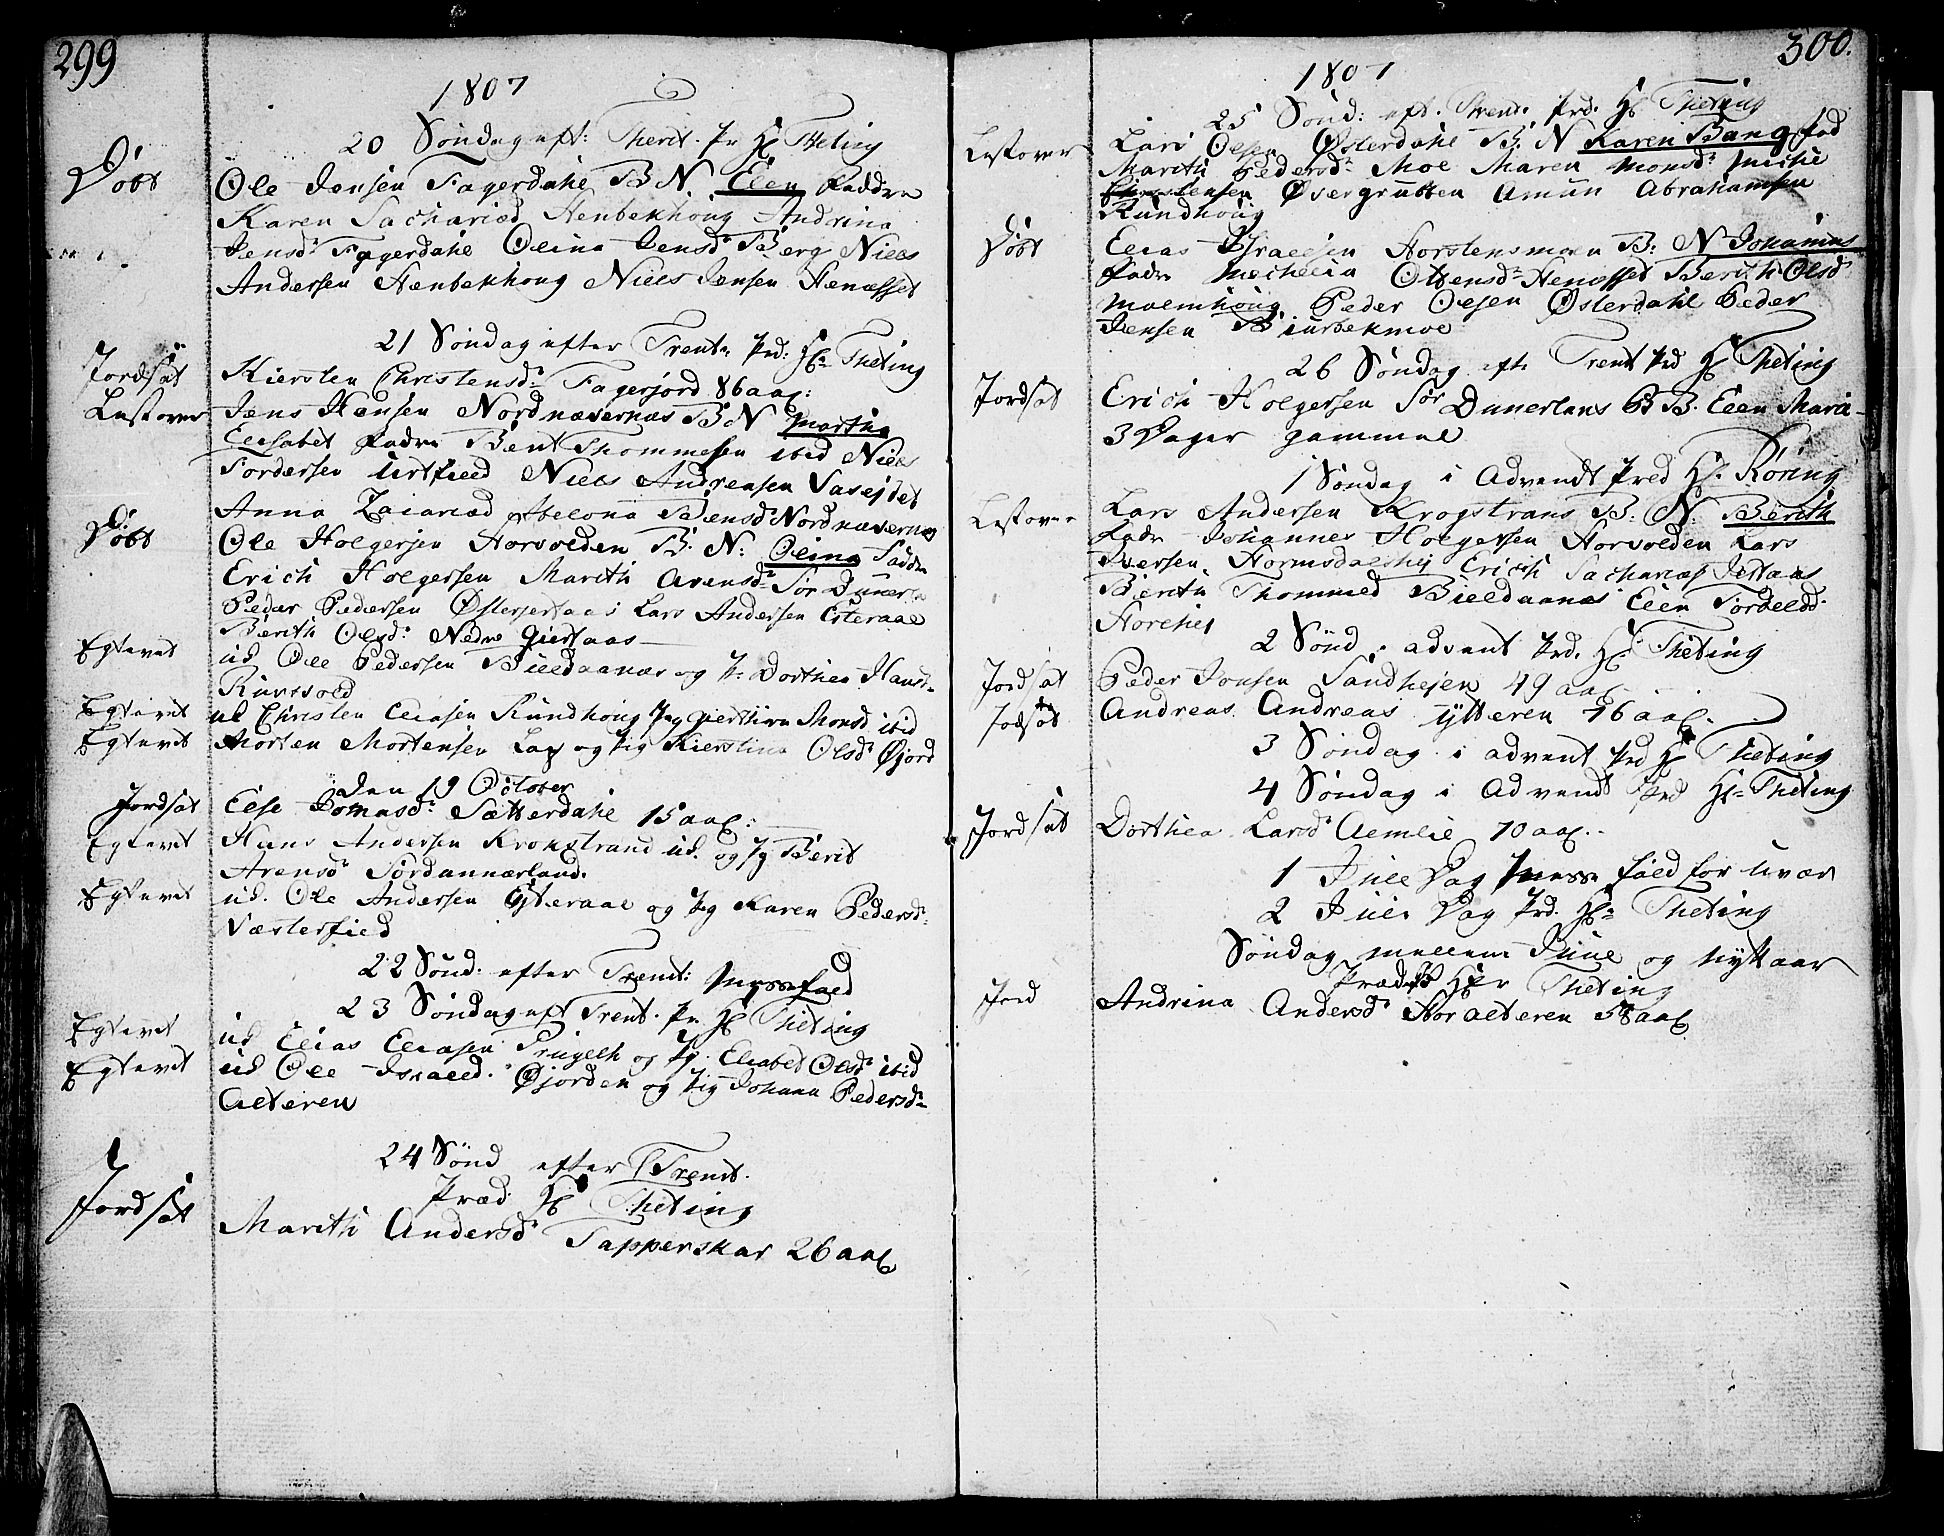 299
1807
20 Søndag eft: Therit. Pr H Theting
Døbt
Ole Jensen Fagerdahl B N. Elen Faddre
Karen Sachariæd Henbekhoug Andrina
Jensd Fagerdahl Olina Jensd Berg Niels
Andersen Henbekhoug Niels Jensen Henæsset
21 Søndag efter Trent Prd: H Theting
Jordsat Kiersten Christensd Fagerjord 86 aar:
Læst over Jens Hansen Nordnæsernæs B N Martha
Elisabet Fadre Bent Thommesen ibid Niels
Tordersen Urtfield Niels Andrensen
Anna Zaiariæd Abelona Jensd Nordnæsernæs
Døbt Ole Holgersen Horvolden B. N: Olina Faddr
Erich Holgersen Marith Arensd Sør Duner
Peder Pedersen Østerjertaas Lars Andersen Yteraae
Berith Olsd Nedre Giertaas
Egtevet ud Ole Pedersen Bieldaanæs og P Dorthea Hansd
Runvold
Egtevet ud Christen Eliasen Rundhoug Pig Monsd ibid
Egtevet Morten Mortensen Lap og Pig Kierstina Olsd Øjord
den 19 October
Jordsat Else Jomasd Sætterdahl 15 aar:
Egtevet Hans Andersen Krokstrand ud. og Pg Berit
Arensd Sørdannærland.
Egtevet ud. Ole Andersen Yteraae og Pig Karen Pedersd
Næsterfield
22 Sönd. efter Trent: Messefald
23 Søndag eft Trent. Pr. H Theting
Egtevet ud Elias Eliasen og Pg. Elisabet Olsd ibid
Egtevet ud Ole Israeld. Øjorden og Pig Johana Pedersd
Alteren
24 Sönd efter Trent.
Præd. H Theting
Jordsat
Marith Andersd Tapperskar 26 aar
300.
1807
25 Sønd: eft. Trent. Prd. H Theting
Læst over Lars Olsen Østerdahl B. N Karen Bang fad
Marith Pedersd Moe Maren Monsd
Christensen Øvergrutten Amun Abrahamsen
Rundhoug
Døbt Elias Israelsen Horstensmoen B. N Johannes
Fadr Mechelin Ottensd Henæsset Berith Olsd
Molmhoug Peder Olsen Østerdahl Peder
Jensen Biurbekmoe
26 Søndag eft. Trent Prd H Theting
Jordsat Erich Holgersen Sør Dunerlans B. Elen Maria
3 Dager gammel
1 Søndag i Advendt Pred H. Røring
Læst over Lars Andersen Krogstrans B. N: Berith
Fadr Johannes Holgersen Horvolden Lars
Iversen Hormsdalshej Erich Sacharias Jertaas
Berith Thommed Bieldaanæs Elen Tordeld
Storehej
2 Sönd i advent Prd. H: Theting
Jordsat Peder Jonsen Sandhejen 49 aar
Jodsat Andreas Andreas Ytteren 76 aar.
3 Söndag i advent Prd H Theting
4 Söndag i Advendt Prd H Theting
Jordsat Dorthea Larsd Aemlie 70 aar.
1 Jule Dag Messe fald for uvær
2 Jule Dag Prd. H: Theting
Søndag mellem Juul og Nyt aar
Præd H r Theting
Jord Andrina Andersd Nor alteren 58 aar